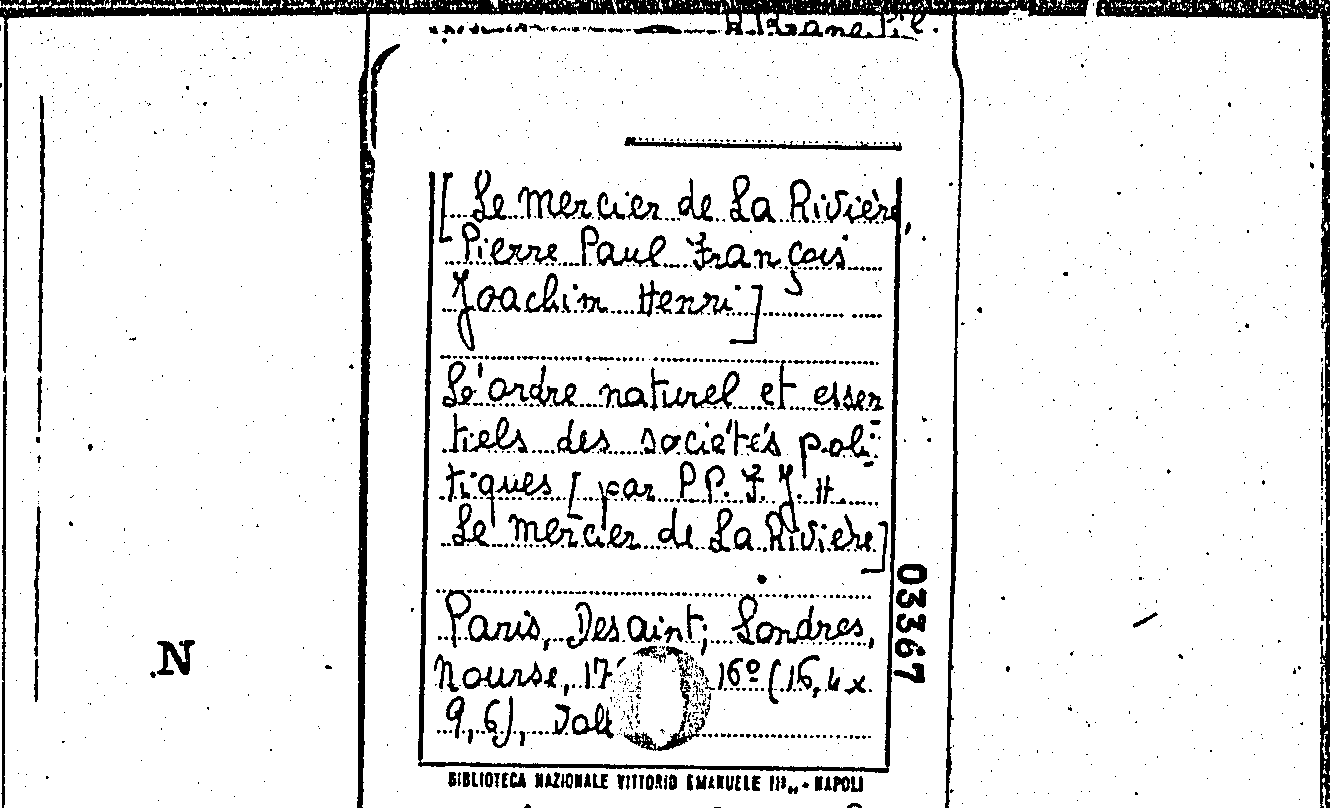 [Le mercier de La Rivière,
Pierre Paul François
Joachim Henri]
Le'ordre naturel et essen
tiels des sociétés poli=
tiques [par P.P. F. J. H.
Le mercier de La Rivière]
Paris, Desaint; Londres,
Nourse, 17 16º (16,4 x
9,6),
03367
N
BIBLIOTECA NAZIONALE VITTORIO EMANUELE III,, - NAPOLI